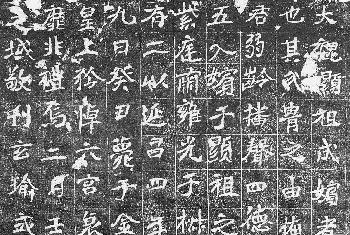 大魏顯祖成嬪者
也其氏冑之由
君弱齡播聲四德
五入嬪于顯祖之
紫庭雨雍光于
有二以延昌四年
九日癸丑薨于金
皇上矜悼六宮哀
靡非禮焉二月壬
之域敬刊玄瑜或